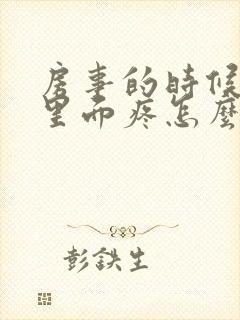 房事的時候
里面疼怎麼
彭鉄生